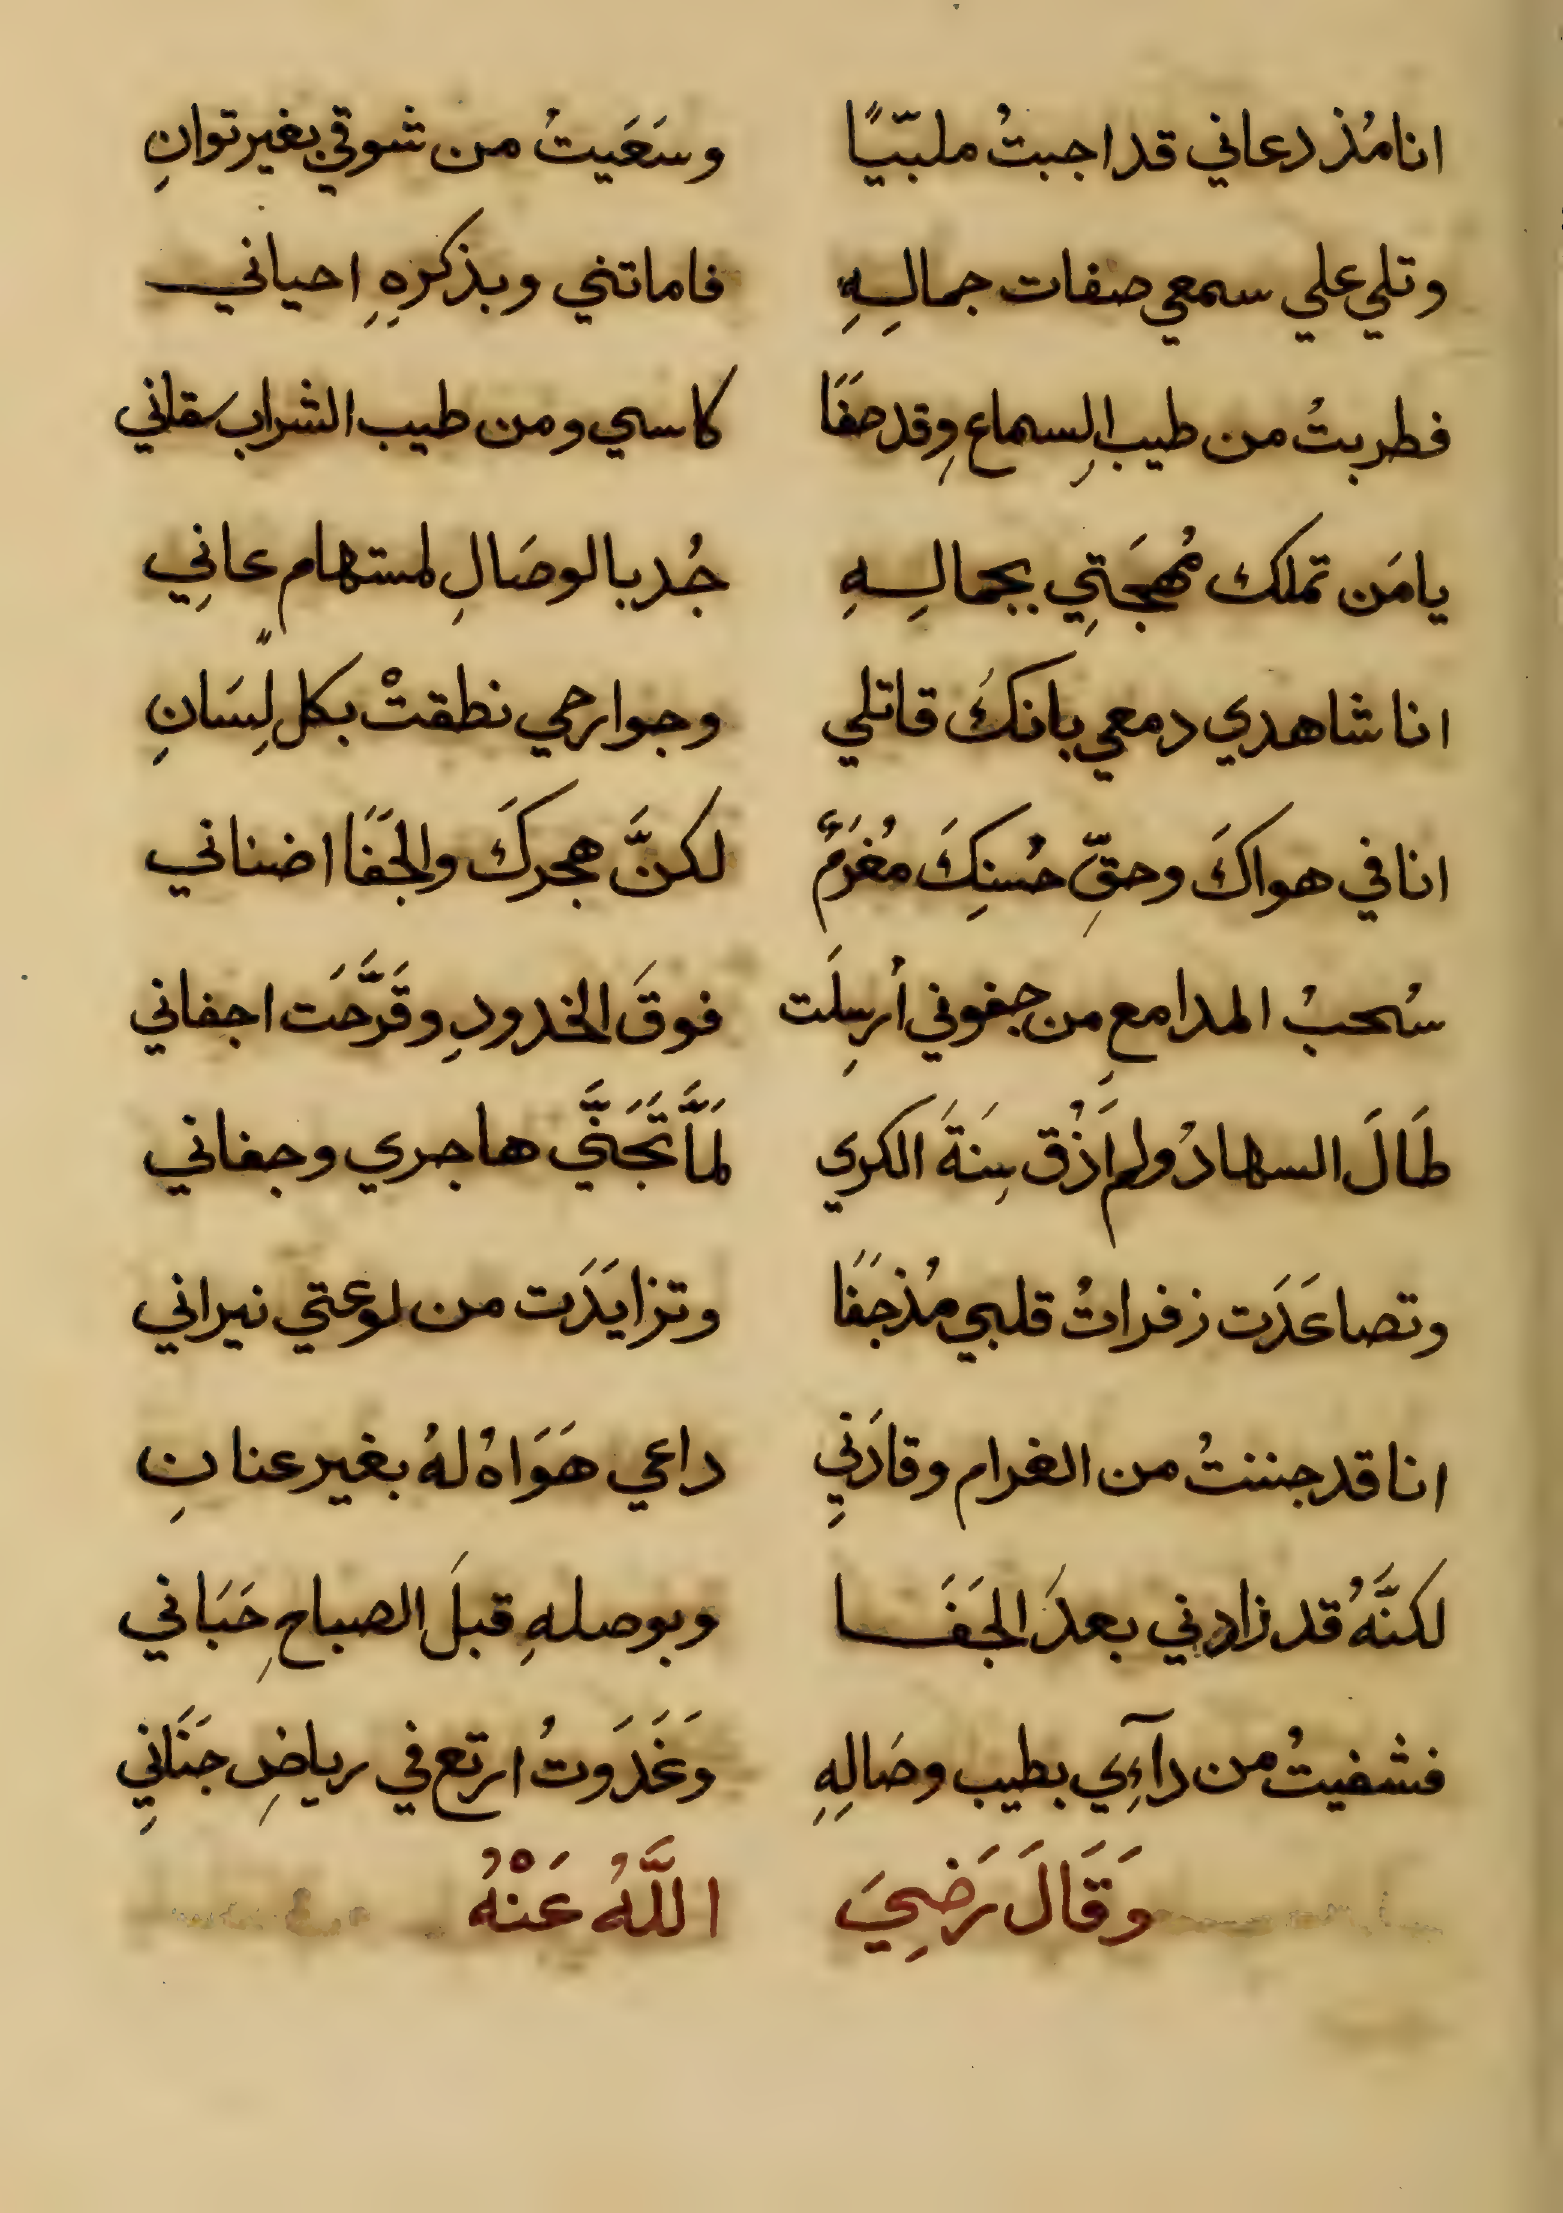 انا مُذ دعاني قد اجبتُ ملبّيًا وسَعَيتُ من شوقي بغير توانِ
وتلي علي سمعي صفات جمالِهِ فاماتني وبذكرِهِ احياني
فطربتُ من طيب السماعِ وقد صفَا كاسي ومن طيب الشراب سقاني
يا مَن تملك مُهجَتِي بجمالِهِ جُد بالوصَالِ لمستهام عانِي
انا شاهدي دمعي بانكَ قاتلي وجوارحي نطقتْ بكل لِسَانِ
انا في هواكَ وحقِّ حُسنِكَ مُغرَمٌ لكنَّ هجركَ والجَفَا اضناني
سُحبُ المدامعِ من جفوني أُرسِلَت فوقَ الخدودِ وقَرَّحَت اجفاني
طَالَ السهادُ ولم اَذُق سِنَةَ الكري لَمَّا تَجَنَّي هاجري وجفاني
وتصاعَدَت زفراتُ قلبي مُذ جَفَا وتزايَدَت من لوعتي نيراني
انا قد جننتُ من الغرام وقادَنِي داعي هَوَاهُ لهُ بغير عنانِ
لكنَّهُ قد زادني بعدَ الجَفَا وبوصلهِ قبلَ الصباحِ حَبَاني
فشفيتُ من دآءِي بطيب وصَالِهِ وَغَدَوتُ ارتع في رياضِ جنَانِي
وَقَالَ رَضِيَ اللَّهُ عَنْهُ